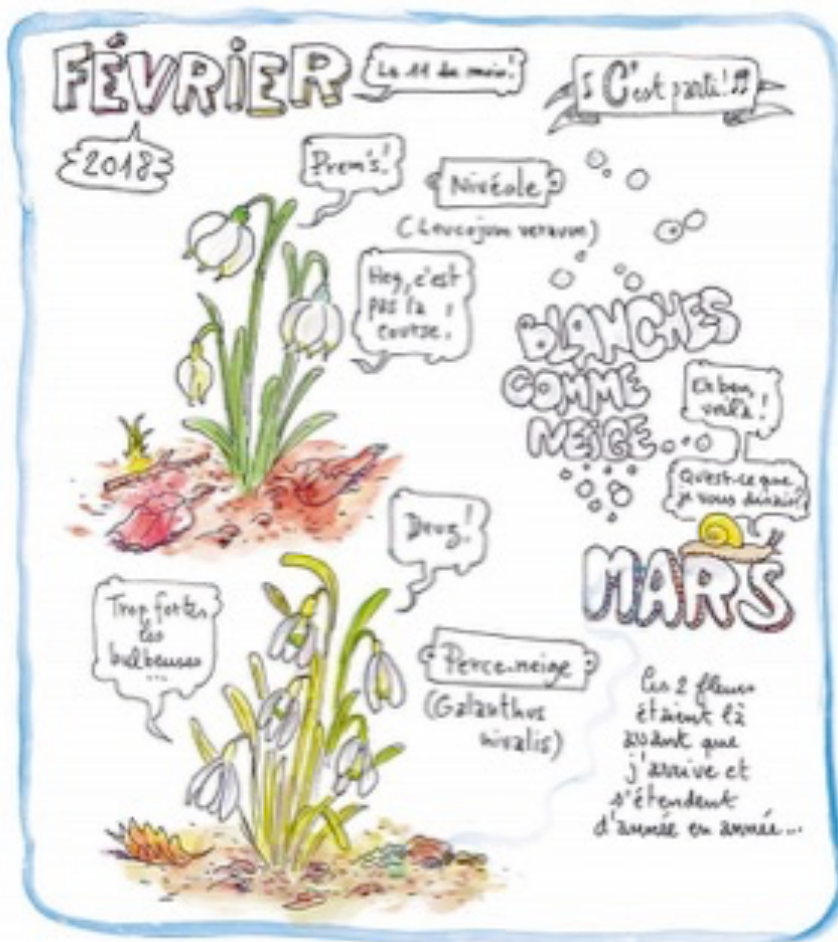 FÉVRIER
Le 11 du mois!
C'est parti!
2018
Prem's!
Nivéole
(Leucojum vernum)
Hey, c'est
pas la
course.
BLANCHES
COMME
NEIGE...
Eh ben,
voilà!
Qu'est-ce que
je vous disais?
MARS
Deuz!
Trop fortes,
les
bulbeuses
...
Perce-neige
(Galanthus
nivalis)
Ces 2 fleurs
étaient là
avant que
j'arrive et
s'étendent
d'année en année...